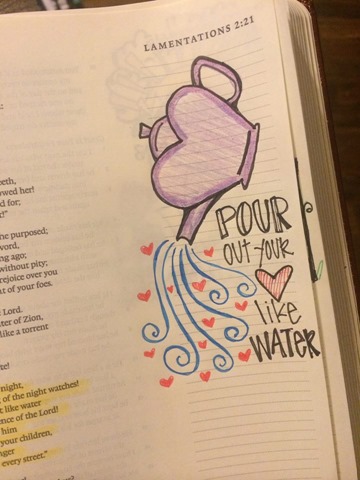 LAMENTATIONS 2:21
eeth,
owed her!
d for;
!"
he purposed;
word,
ng ago;
without pity;
rejoice over you
t of your foes.
e Lord.
ter of Zion,
like a torrent
te!
night,
g of the night watches!
t like water
ence of the Lord!
him
your children,
nger
every street."
POUR
OUT YOUR
like
WATER